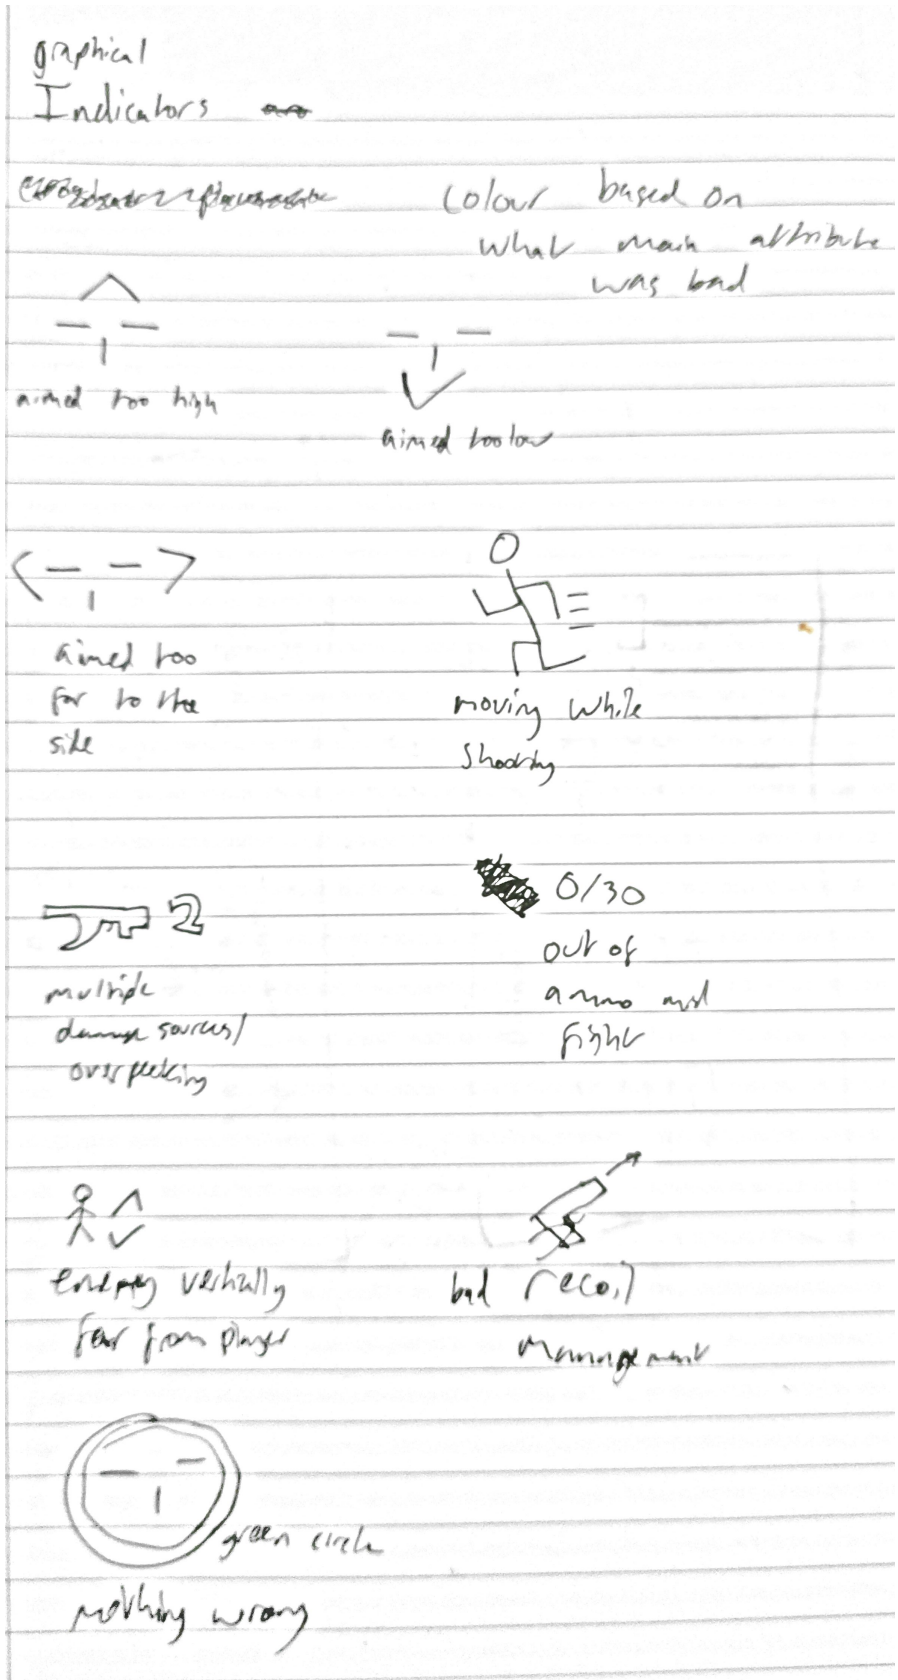 graphical
Indicators
Colour based on
what main attribute
was bad
aimed too high
aimed too low
aimed too
far to the
side
moving while
shooting
2
multiple
damage sources/
overpeeking
0/30
out of
ammo mid
fight
enemy vertically
far from player
bad recoil
management
green circle
nothing wrong